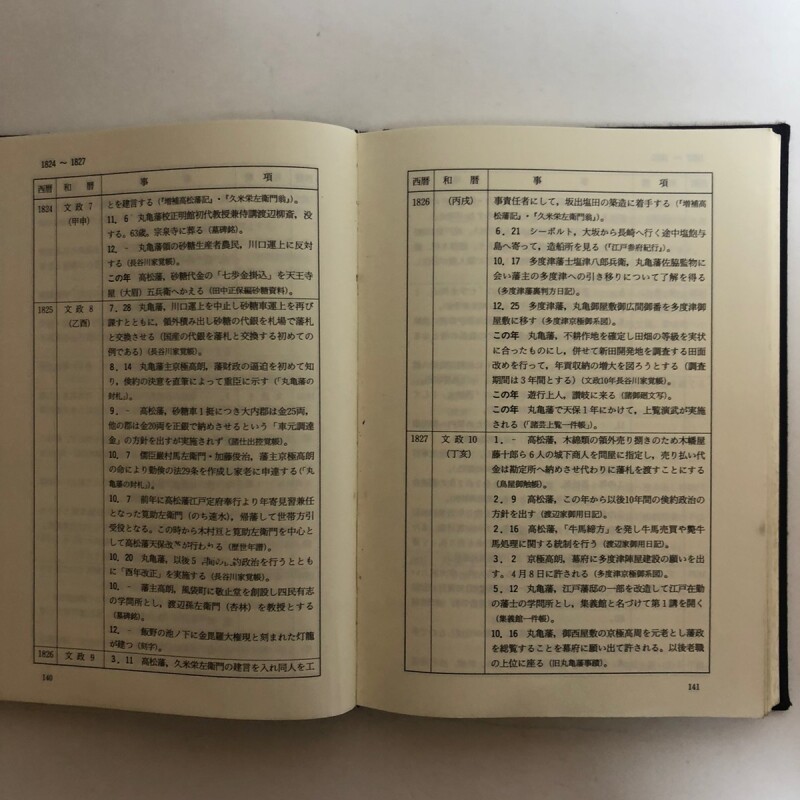 1824 〜 1827
西暦 和暦 事項
1824 文政 7 とを建言する(『増補高松藩記』・『久米栄左衛門翁』)。
(甲申) 11. 6 丸亀藩校正明館初代教授兼侍講渡辺柳斎，没
する。63歳。宗泉寺に葬る(墓碑銘)。
12. - 丸亀藩領の砂糖生産者農民，川口運上に反対
する(長谷川家覚帳)。
この年 高松藩，砂糖代金の「七歩金掛込」を天王寺
屋(大眉)五兵衛へかえる(田中正保編砂糖資料)。
1825 文政 8 7. 28 丸亀藩，川口運上を中止し砂糖車運上を再び
(乙酉) 課すとともに，領外積み出し砂糖の代銀を札場で藩札
と交換させる(国産の代銀を藩札と交換する初めての
例である)(長谷川家覚帳)。
8. 14 丸亀藩主京極高朗，藩財政の逼迫を初めて知
り，倹約の決意を直筆によって重臣に示す(「丸亀藩の
封札」)。
9. - 高松藩，砂糖車1挺につき大内郡は金25両，
他の郡は金20両を正銀で納めさせるという「車元調達
金」の方針を出すが実施されず(諸仕出控覚帳)。
10. 7 儒臣巌村馬左衛門・加藤俊治，藩主京極高朗
の命により勤倹の法29条を作成し家老に申達する(「丸
亀藩の封札」)。
10. 7 前年に高松藩江戸定府奉行より年寄見習兼任
となった筧助左衛門(のち速水)，帰藩して世帯方引
受役となる。この時から木村亘と筧助左衛門を中心と
して高松藩天保改が行われる(歴世年譜)。
10. 20 丸亀藩，以後5約政治を行うとと
もに「酉年改正」を実施する(長谷川家覚帳)。
10. - 藩主高朗，風袋町に敬止堂を創設し四民有志
の学問所とし，渡辺孫左衛門(杏林)を教授とする
(墓碑銘)。
12. - 飯野の池ノ下に金毘羅大権現と刻まれた灯籠
が建つ(刻字)。
1826 文政 9 3. 11 高松藩，久米栄左衛門の建言を入れ同人を工
140
西暦 和暦 事項
1826 (丙戌) 事責任者にして，坂出塩田の築造に着手する(『増補高
松藩記』・『久米栄左衛門翁』)。
6. 21 シーボルト，大坂から長崎へ行く途中塩飽与
島へ寄って，造船所を見る(『江戸参府紀行』)。
10. 17 多度津藩士塩津八郎兵衛，丸亀藩佐脇監物に
会い藩主の多度津への引き移りについて了解を得る
(多度津藩裏判方日記)。
12. 25 多度津藩，丸亀御屋敷御広間御番を多度津御
屋敷に移す(多度津京極御系図)。
この年 丸亀藩，不耕作地を確定し田畑の等級を実状
に合ったものにし，併せて新田開発地を調査する田面
改めを行って，年貢収納の増大を図ろうとする(調査
期間は3年間とする)(文政10年長谷川家覚帳)。
この年 遊行上人，讃岐に来る(諸御廻文写)。
この年 丸亀藩で天保1年にかけて，上覧演武が実施
される(「諸芸上覧一件帳」)。
1827 文政 10 1. - 高松藩，木綿類の領外売り捌きのため木幡屋
(丁亥) 藤十郎ら6人の城下商人を問屋に指定し，売り払い代
金は勘定所へ納めさせ代わりに藩札を渡すことにする
(鳥屋御触帳)。
2. 9 高松藩，この年から以後10年間の倹約政治の
方針を出す(渡辺家御用日記)。
2. 16 高松藩，「牛馬締方」を発し牛馬売買や斃牛
馬処理に関する統制を行う(渡辺家御用日記)。
3. 2 京極高朗，幕府に多度津陣屋建設の願いを出
す。4月8日に許される(多度津京極御系図)。
5. 12 丸亀藩，江戸藩邸の一部を改造して江戸在勤
の藩士の学問所とし，集義館と名づけて第1講を開く
(集義館一件帳)。
10. 16 丸亀藩，御西屋敷の京極高周を元老とし藩政
を総覧することを幕府に願い出て許される。以後老職
の上位に座る(旧丸亀藩事蹟)。
141